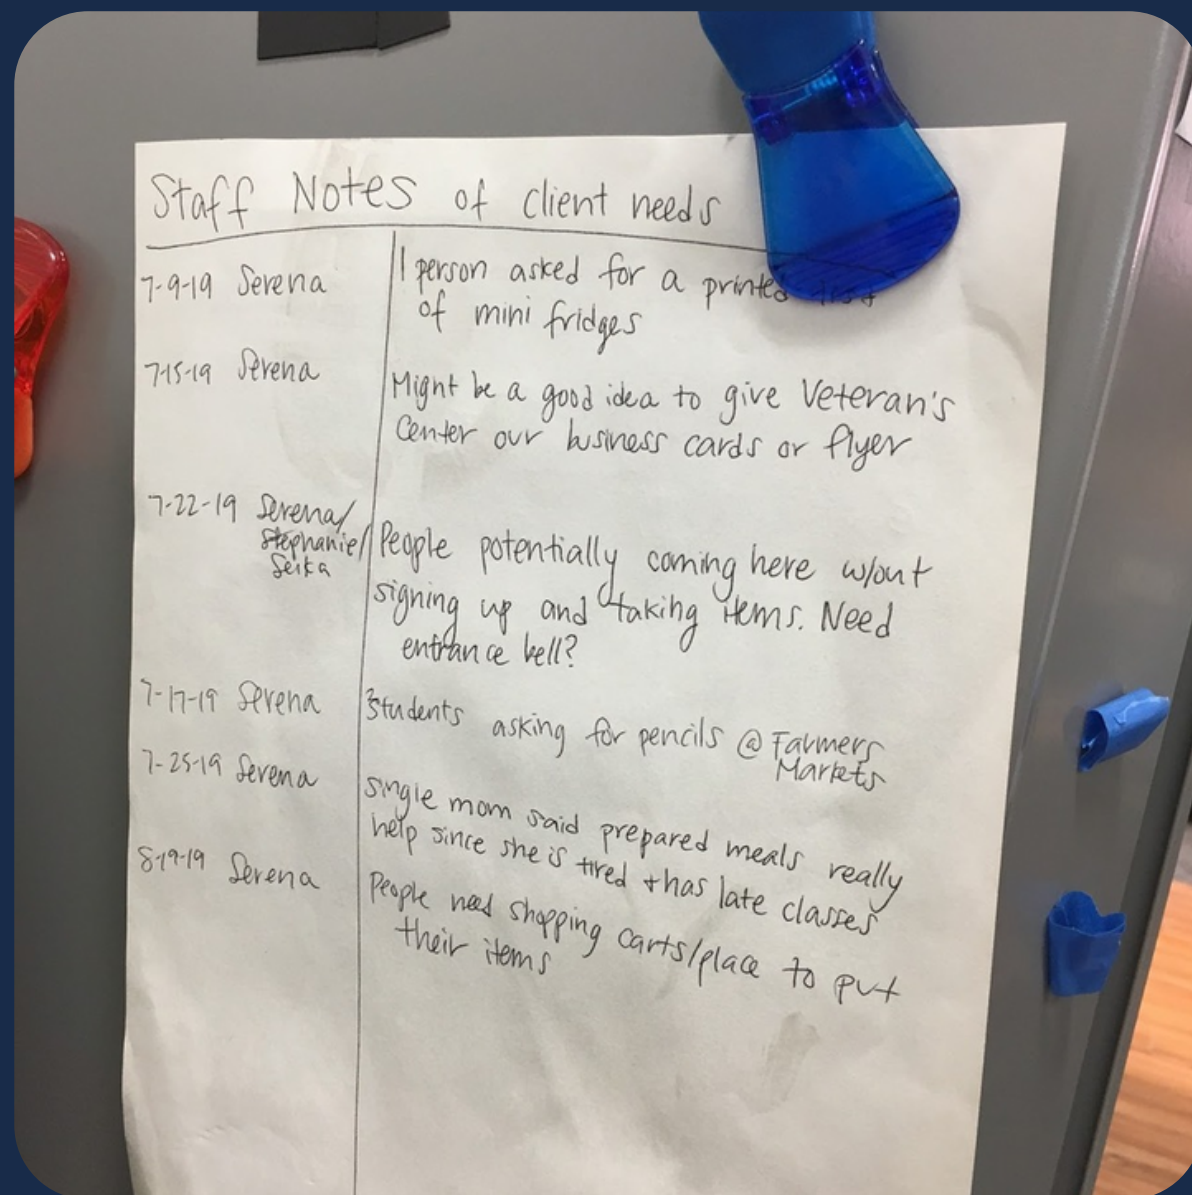 Staff Notes of client needs
7-9-19 Serena 1 person asked for a printed list
of mini fridges
7-15-19 Serena Might be a good idea to give Veteran's
Center our business cards or flyer
7-22-19 Serena/
Stephanie/ People potentially coming here w/out
Seika signing up and taking items. Need
entrance bell?
7-17-19 Serena Students asking for pencils @ Farmers
Markets
7-25-19 Serena single mom said prepared meals really
help since she is tired + has late classes
8-19-19 Serena People need shopping carts/place to put
their items